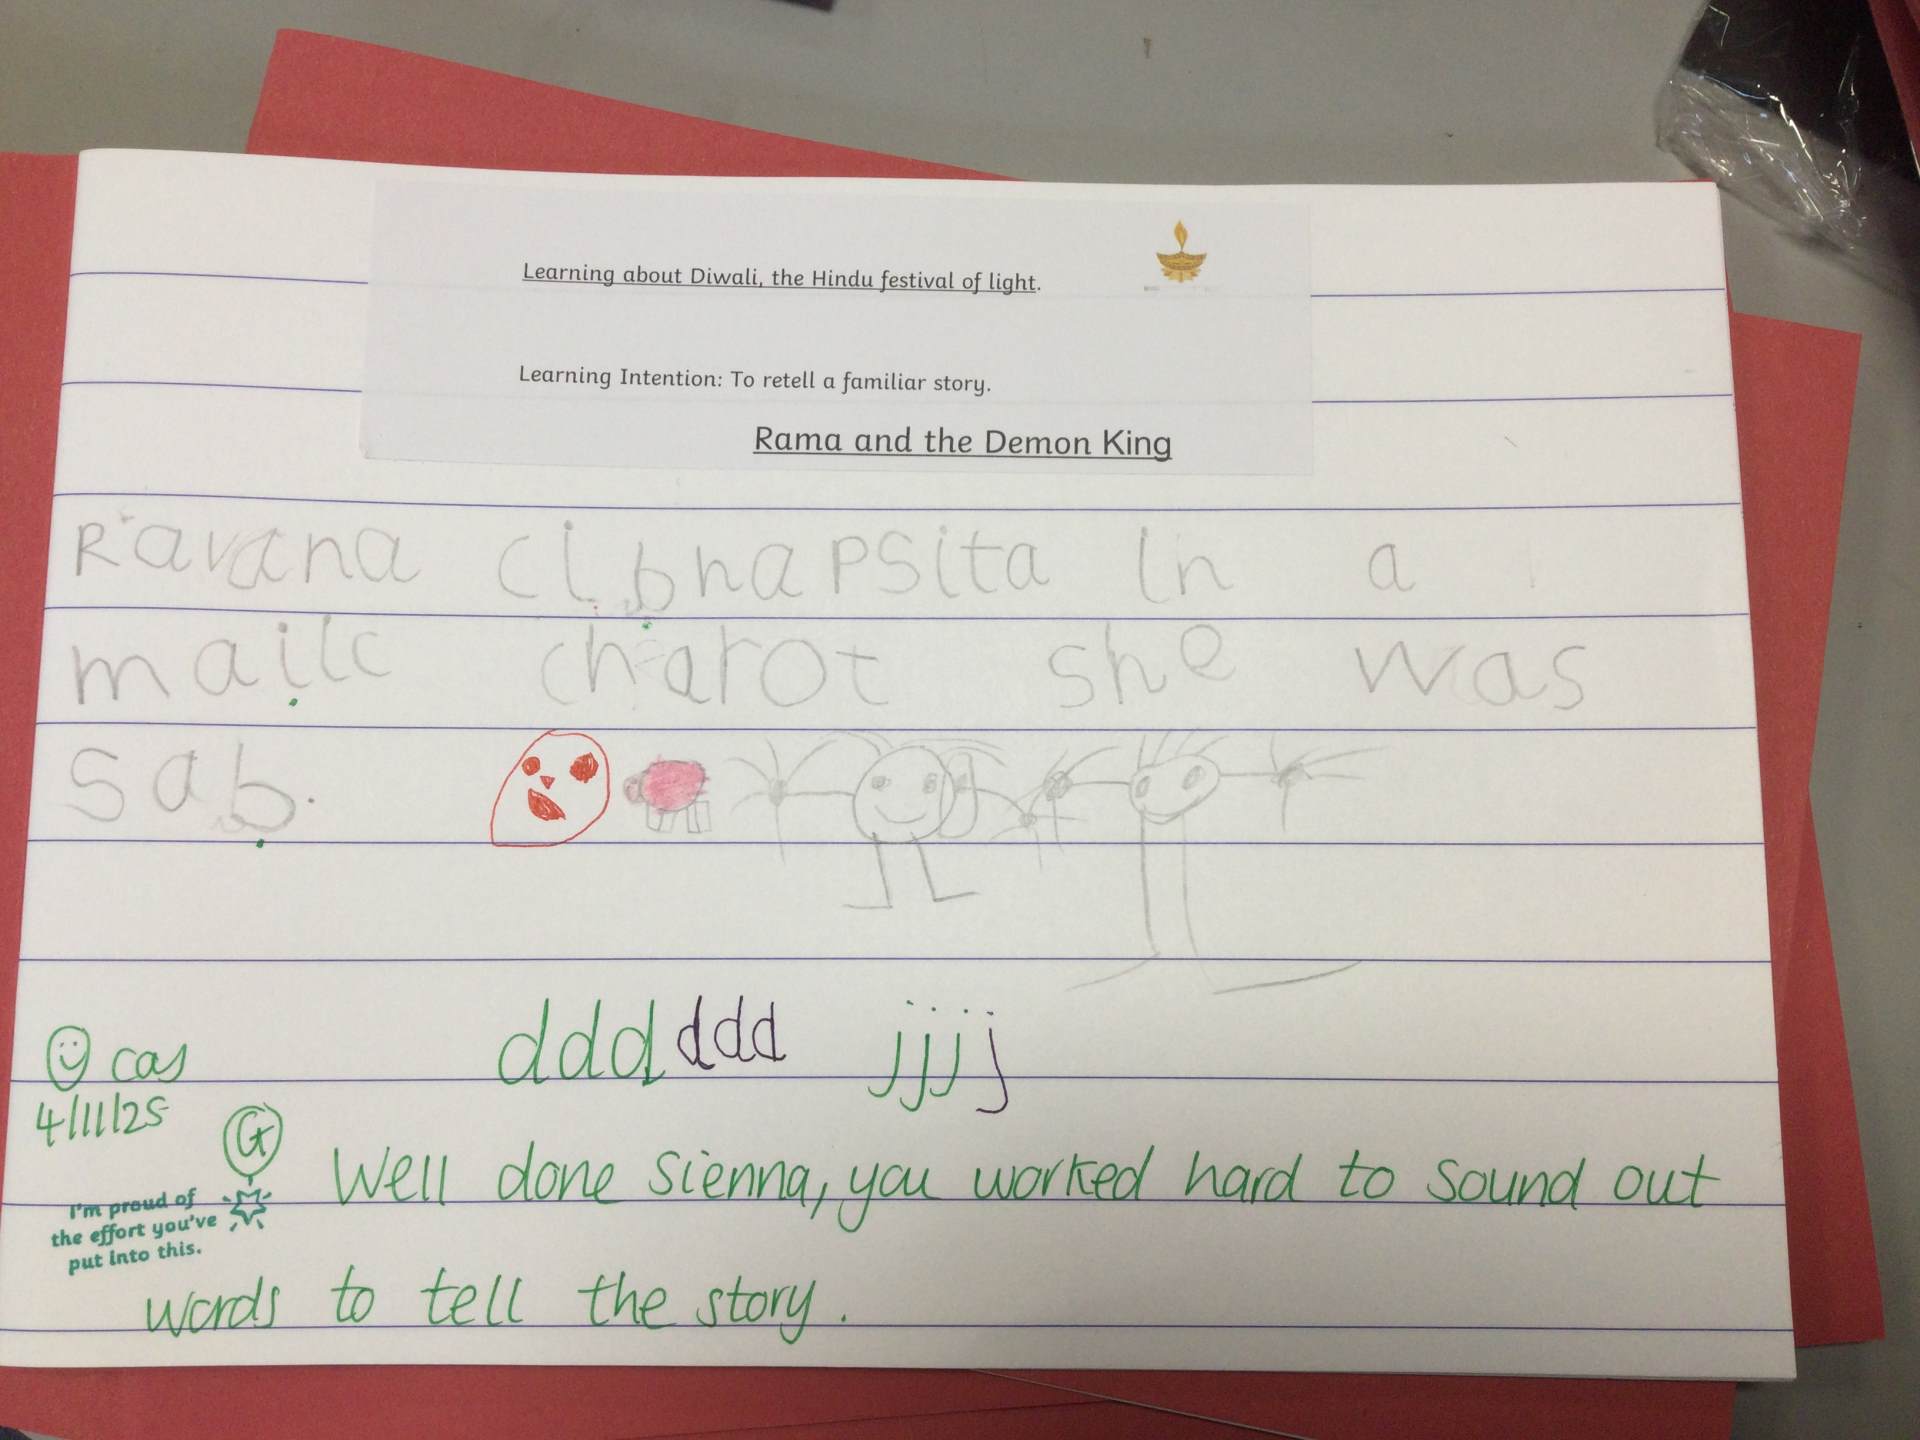 Learning about Diwali, the Hindu festival of light.
Learning Intention: To retell a familiar story.
Rama and the Demon King
Ravana cibnapsita in a
mailc charot she was
sab.
ddd ddd jjjj
cas
4/11/25
G
Well done Sienna, you worked hard to sound out
words to tell the story.
I'm proud of
the effort you've
put into this.